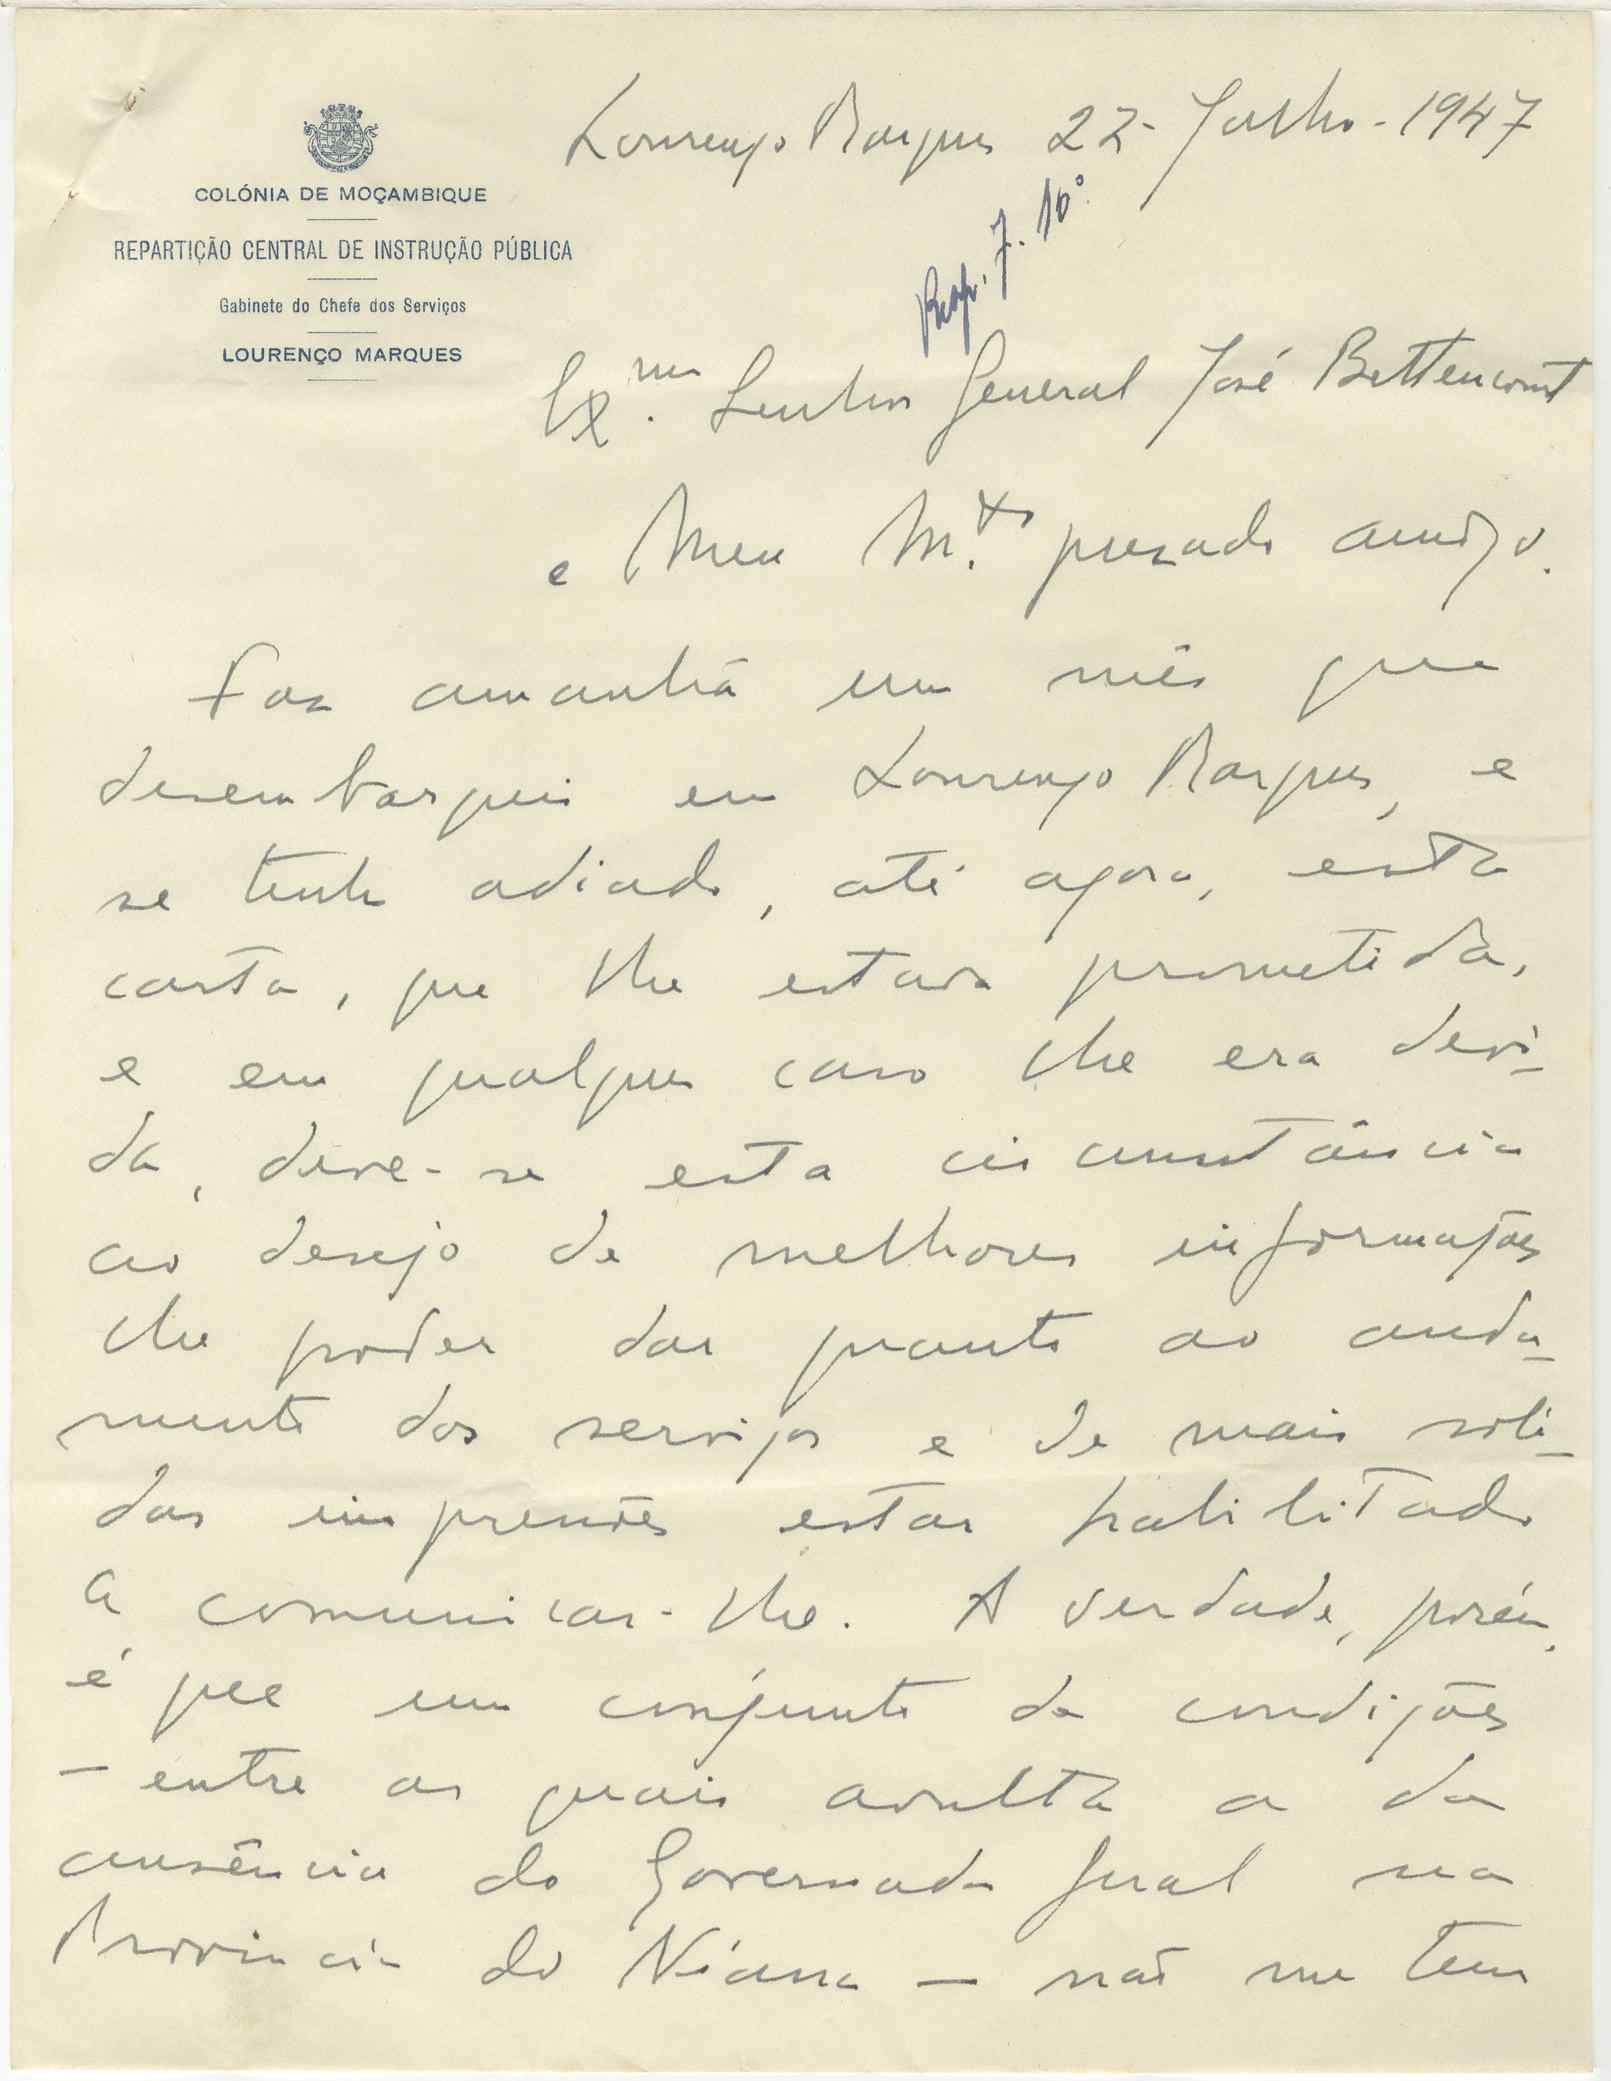 COLÓNIA DE MOÇAMBIQUE
REPARTIÇÃO CENTRAL DE INSTRUÇÃO PÚBLICA
Gabinete do Chefe dos Serviços
LOURENÇO MARQUES
Lourenço Marques 22 - Julho - 1947
Resp. 7. 10º
Ex.mo Senhor General José Bettencourt
e Meu M.to prezado amigo.
Faz amanhã um mês que
desembarquei em Lourenço Marques, e
se tenho adiado, até agora, esta
carta, que lhe estava prometida,
e em qualquer caso lhe era devi-
da, deve-se esta circunstância
ao desejo de melhores informações
lhe poder dar quanto ao anda-
mento dos serviços e de mais sóli-
das impressões estar habilitado
a comunicar-lhe. A verdade, porém,
é que um conjunto de condições
- entre as quais avulta a da
ausência do Governador Geral na
Província do Niassa - não me tem